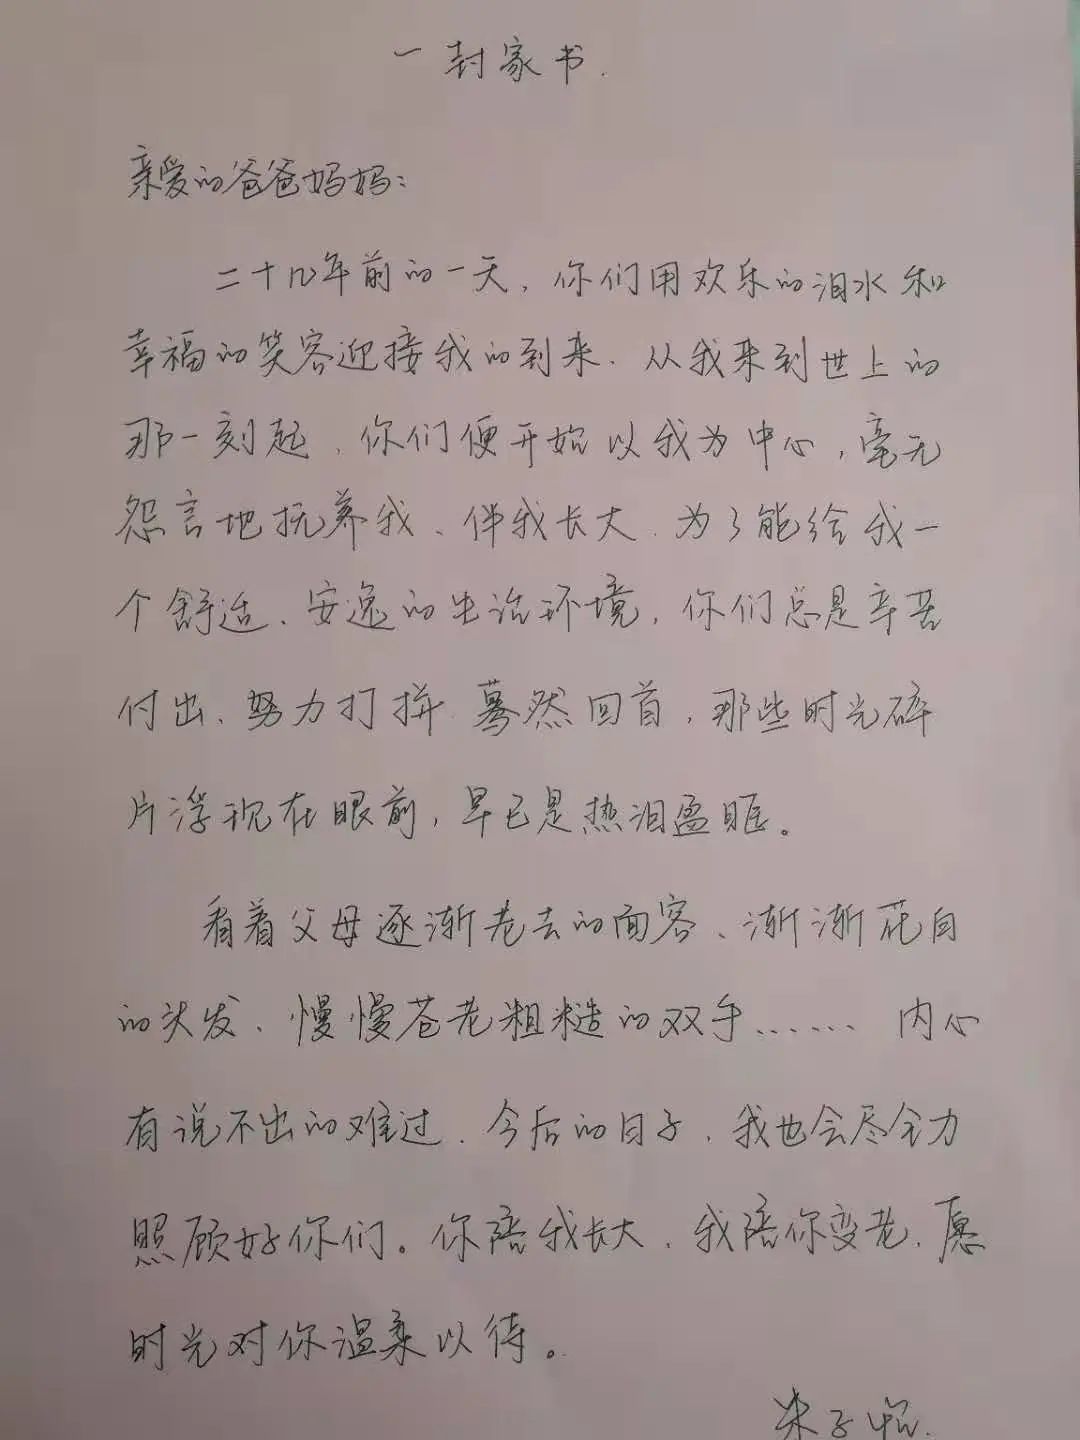 一封家书.
亲爱的爸爸妈妈：
二十几年前的一天，你们用欢乐的泪水和
幸福的笑容迎接我的到来.从我来到世上的
那一刻起，你们便开始以我为中心，毫无
怨言地抚养我、伴我长大.为了能给我一
个舒适、安逸的生活环境，你们总是辛苦
付出、努力打拼.蓦然回首，那些时光碎
片浮现在眼前，早已是热泪盈眶。
看着父母逐渐老去的面容、渐渐花白
的头发、慢慢苍老粗糙的双手…… 内心
有说不出的难过.今后的日子，我也会尽全力
照顾好你们。你陪我长大，我陪你变老，愿
时光对你温柔以待。